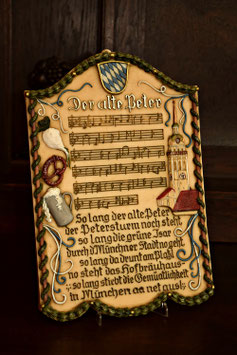 Der alte Peter
So lang der alte Peter
der Petersturm noch steht
so lang die grüne Isar
durch d'Münchner Stadt no geht
so lang da drunt am Platzl
no steht das Hofbräuhaus
so lang stirbt die Gemütlichkeit
in München na net aus